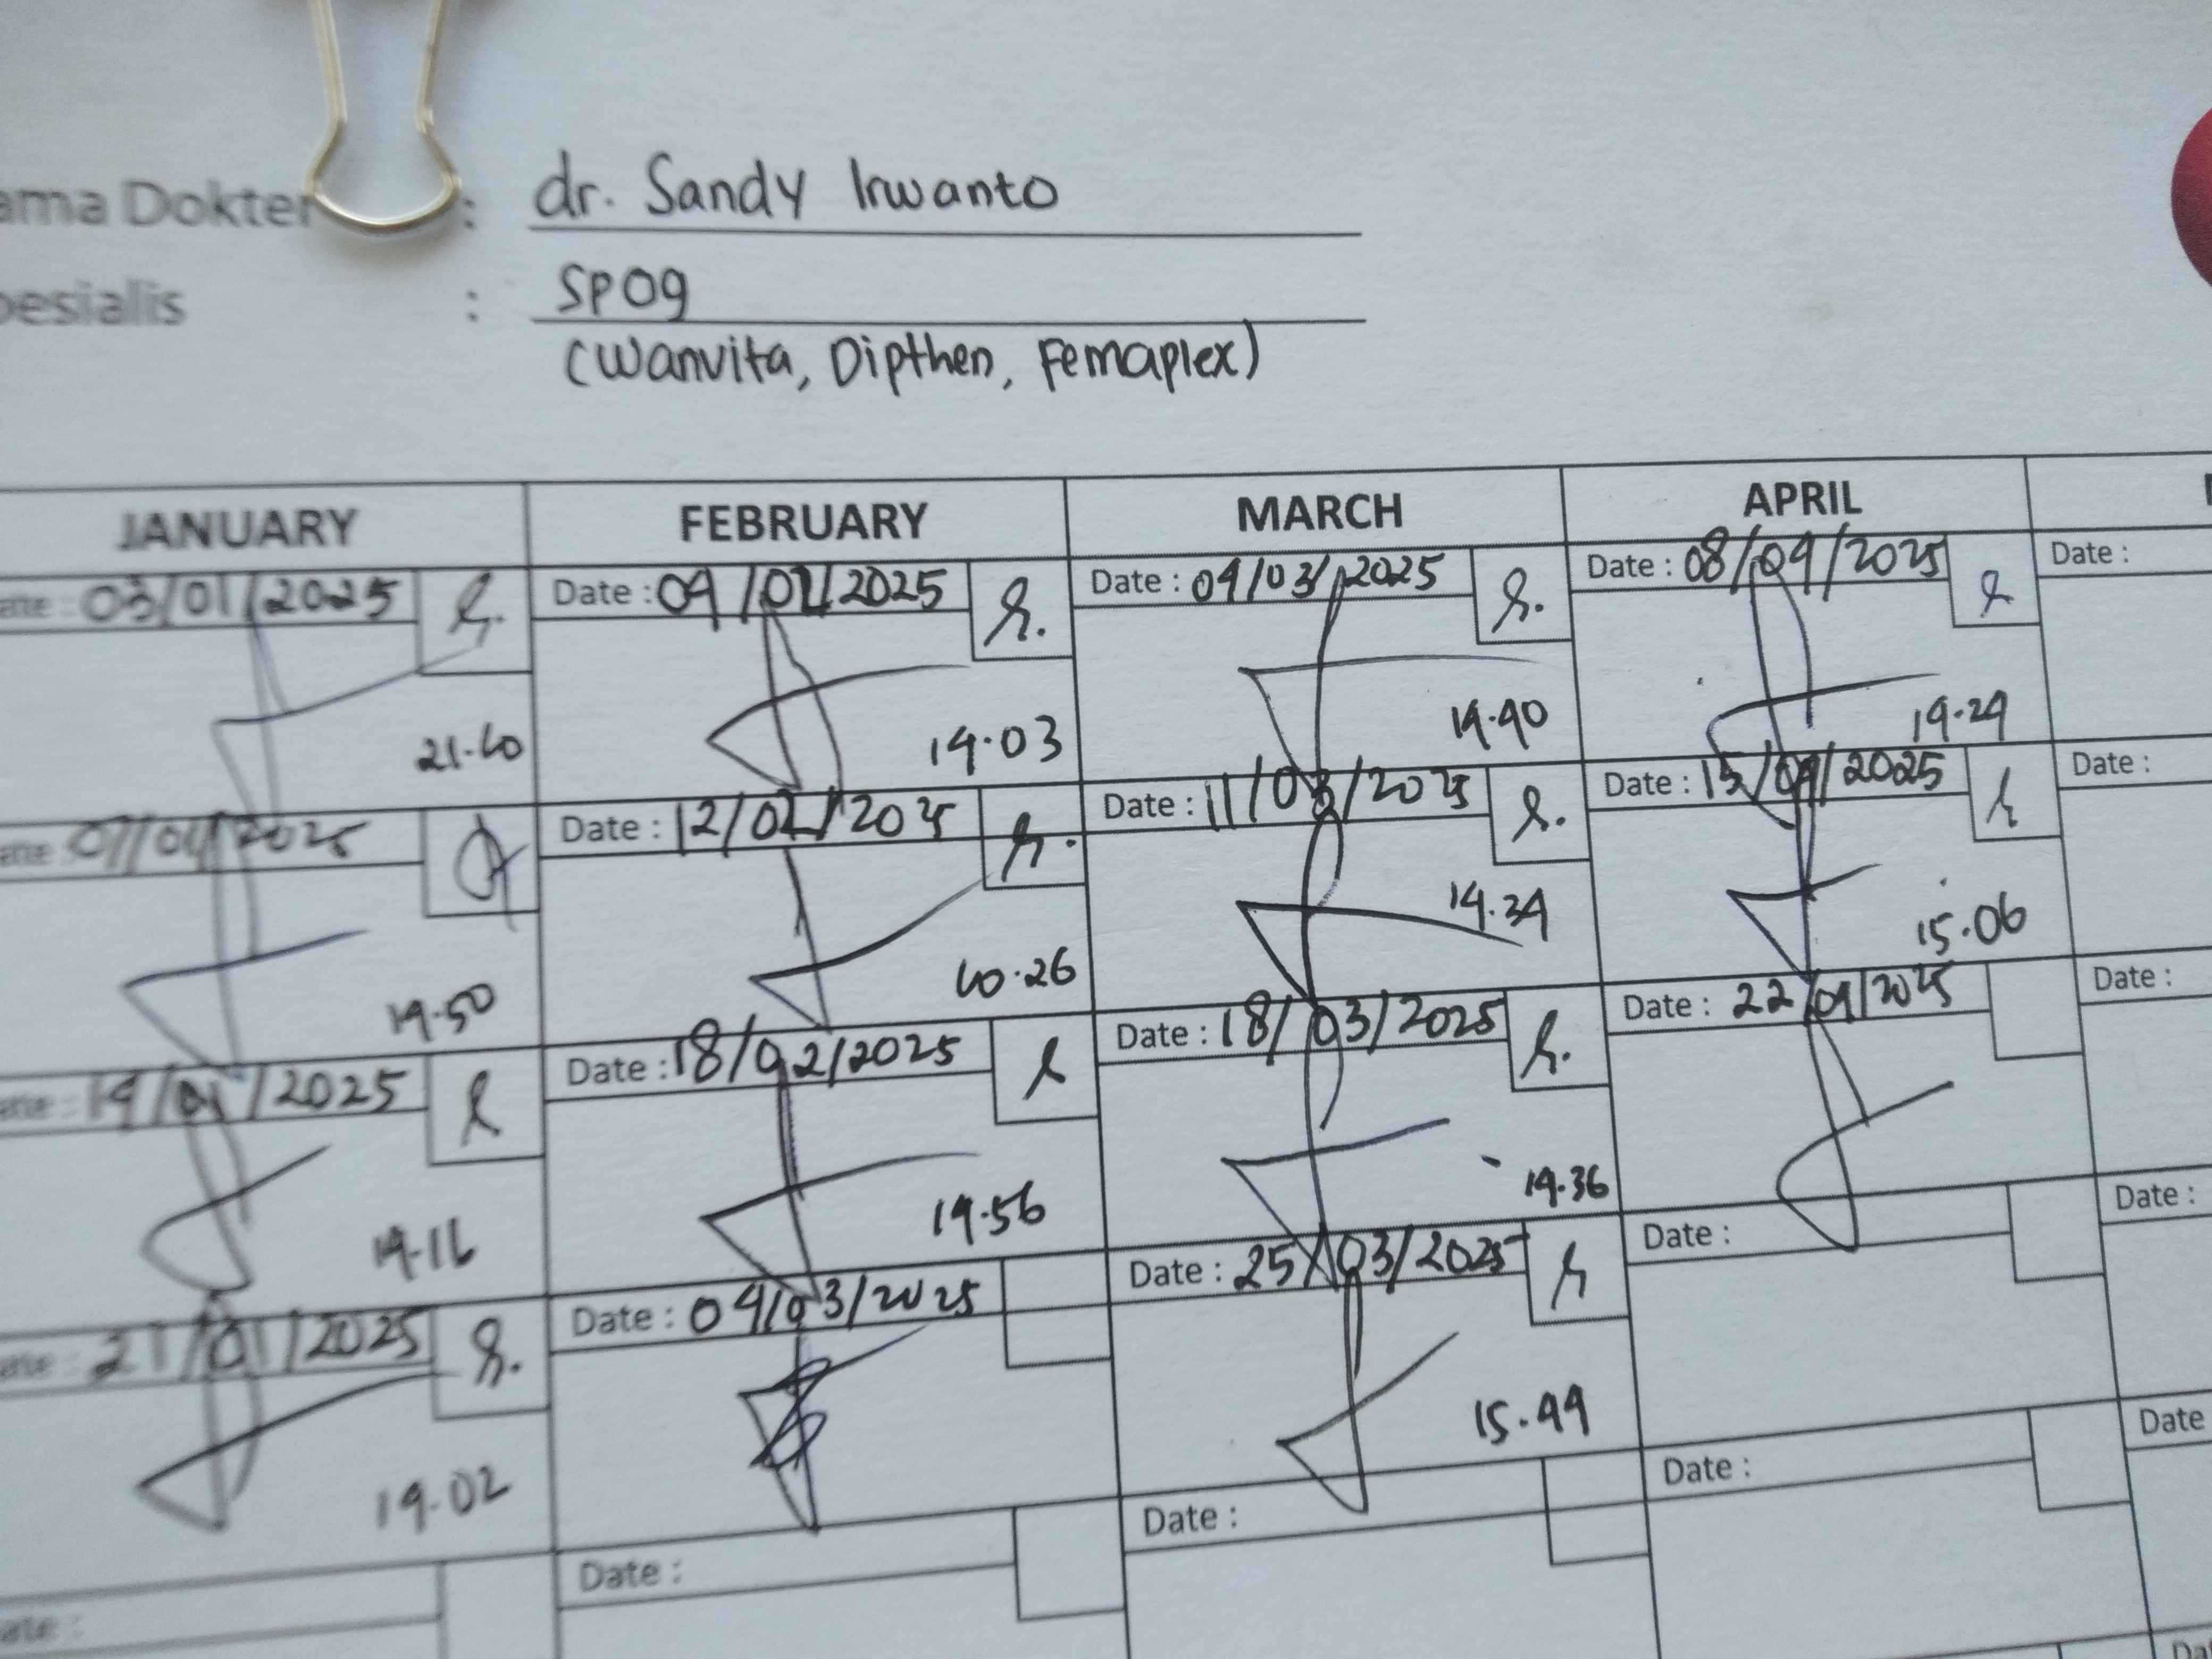 ama Dokter : dr. Sandy Irwanto
pesialis : SPOG
(Wanvita, Dipthen, Femaplex)
JANUARY FEBRUARY MARCH APRIL
ate : 03/01/2025 Date : 04/02/2025 Date : 04/03/2025 Date : 08/04/2025 Date :
14.03 14.40 14.24
ate 07/01/2025 Date : 12/02/2025 Date : 11/03/2025 Date : 15/04/2025 Date :
14.50 10.26 14.34 15.06
ate : 14/01/2025 Date : 18/02/2025 Date : 18/03/2025 Date : 22/04/2025 Date :
14.16 14.56 14.36
ate : 21/01/2025 Date : 04/03/2025 Date : 25/03/2025 Date : Date :
14.02 15.44
ate : Date : Date : Date : Date